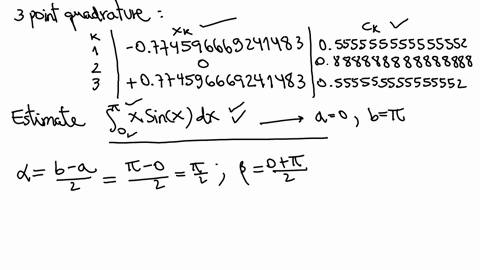 3 point quadrature :
K | xK ✓ | cK ✓
1 | -0.774596669241483 | 0.555555555555552
2 | 0 | 0.888888888888888
3 | +0.774596669241483 | 0.555555555555552
Estimate ∫₀^π x Sin(x) dx ✓ ⟶ a=0, b=π
α = (b-a)/2 = (π-0)/2 = π/2 ; β = (0+π)/2